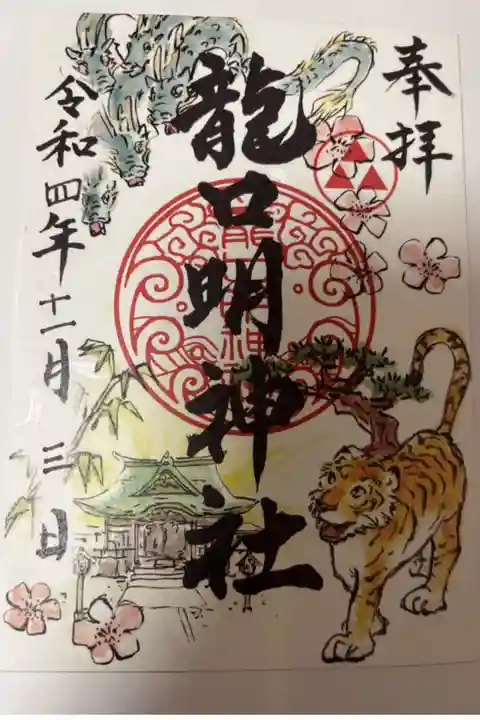 奉拝
龍口明神社
令和四年十一月三日